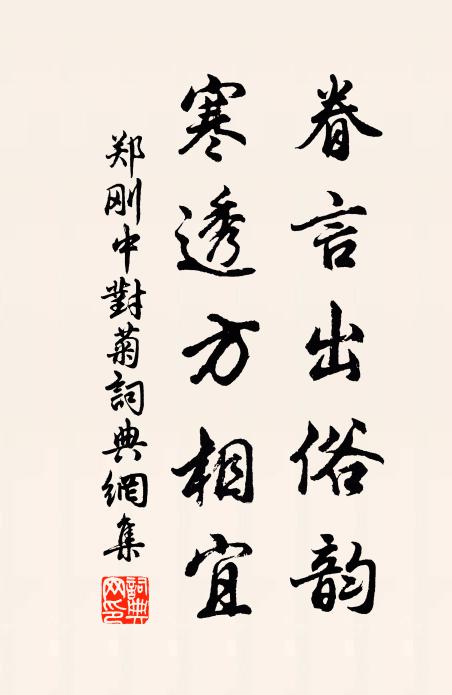 眷言出俗韵
寒透方相宜
郑刚中對菊詞典網集
詞典网印